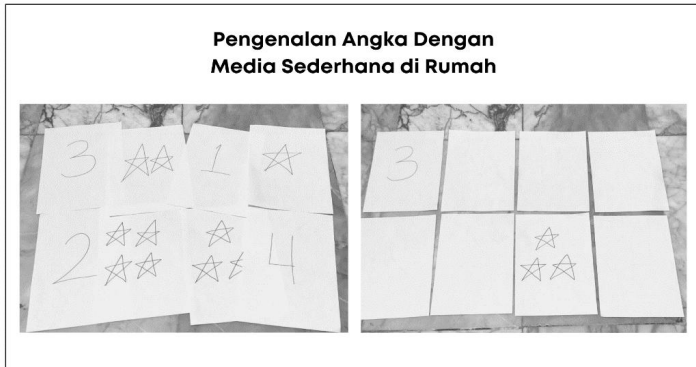 Pengenalan Angka Dengan
Media Sederhana di Rumah
3 1
2 4
3